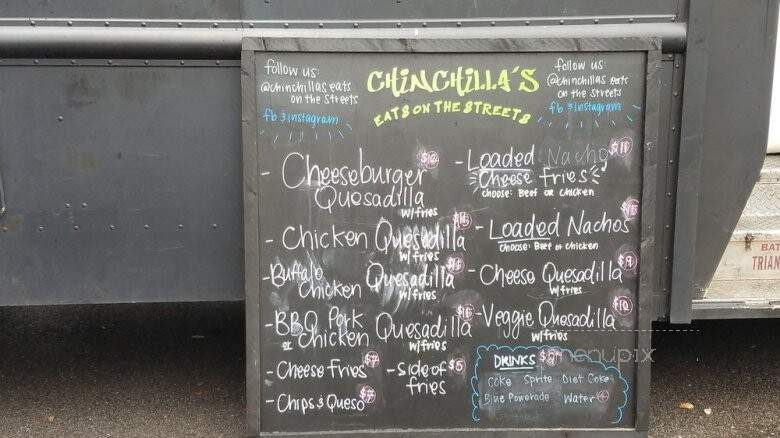 follow us:
@chinchillas eats
on the streets
fb & instagram
CHINCHILLA'S
EATS ON THE STREETS
follow us:
@chinchillas eats
on the streets
fb & instagram
- Cheeseburger
Quesadilla
w/fries
- Chicken Quesadilla
w/fries
- Buffalo
Chicken Quesadilla
w/fries
- BBQ Pork
or Chicken Quesadilla
w/fries
- Cheese Fries $7
- Chips & Queso $7
- Side of $5
fries
- Loaded Nacho $11
Cheese fries
choose: Beef or chicken
- Loaded Nachos
choose: Beef or chicken
- Cheese Quesadilla $9
w/fries
- Veggie Quesadilla $10
w/fries
DRINKS
Coke Sprite Diet Coke
Blue Powerade Water
menupix
BAT
TRIAN